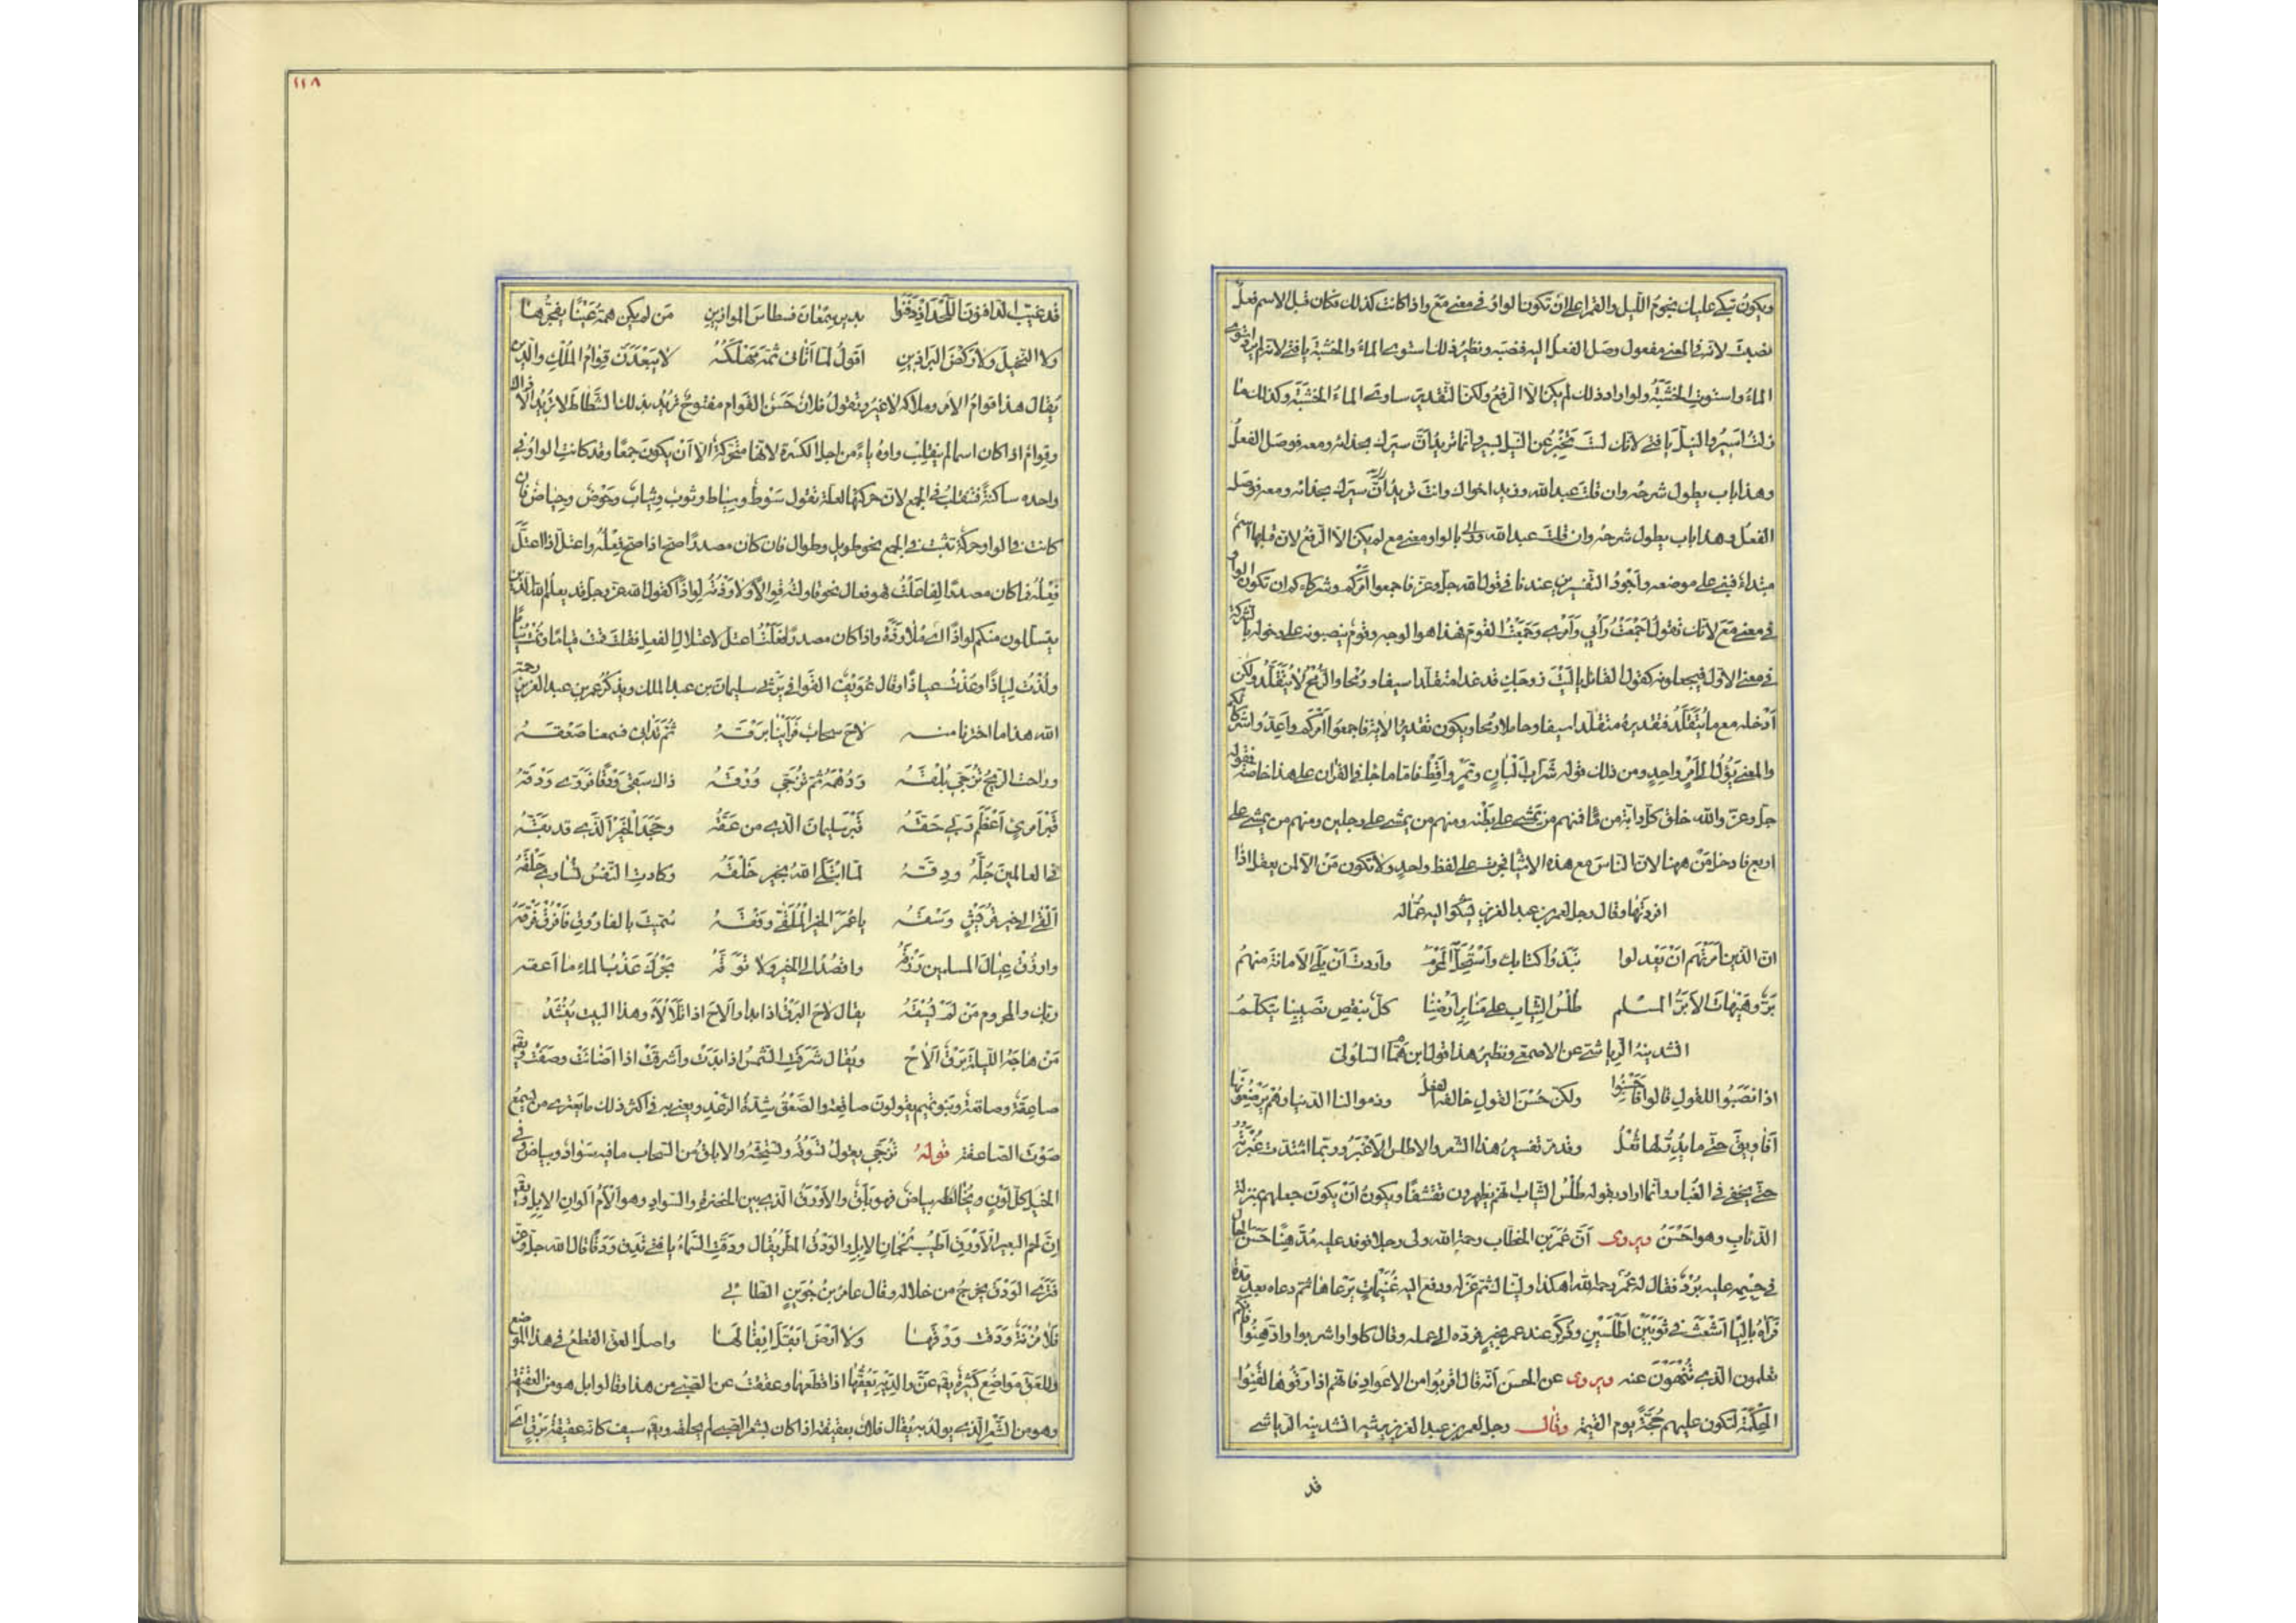 ويكون تبكي عليك نجومَ الليل والقمرا على ان تكون الواو في معنى مع واذا كانت كذلك فكان قبل الاسم فعلٌ
نصبت لانه في المعنى مفعول وصل الفعل اليه فنصبه ونظير ذلك استوى الماء والخشبة يا فتى لانه لم يرد استوى
الماءُ واستوتِ الخشبَةُ ولو اراد ذلك لم يكن الا الرفع ولكن التقدير ساوى الماءُ الخشبَةَ وكذلك ما
زلتُ اسيرُ والنيلَ يا فتى لانك لست تخبر عن النيل بسير وانما تريد ان سيرك بحذائه ومعه فوصل الفعل
وهذا باب يطول شرحه وان قلت عبد الله وزيد اخواك وانت تريد انّ سيرك بحذائه ومعه فوصل
الفعل وهذا باب يطول شرحه وان قلت عبد الله بالواو معنى مع لم يكن الا الرفع لان قبلها اسم
مبتداء فهي على موضعه وأجود التفسيرين عندنا في قول الله جل وعز فاجمعوا امركم وشركاءكم ان تكون الواو
في معنى مع لانك تقول اجمعتُ رأيي وأمري وجمعتُ القوم فهذا هو الوجه وقوم ينصبونه على دخوله بالشركة
في معنى الاول فيجعلونه كقول القائل يا ليت زوجك قد غدا متقلدا سيفا ورمحا والرمح لا يتقلد ولكن
أدخله مع ما يتقلد فتقديره متقلدا سيفا وحاملا رمحا ويكون تقدير الاية فاجمعوا امركم واعدوا شركاءكم
والمعنى يؤل الى أمرٍ واحدٍ ومن ذلك قوله شرّاب ألبانٍ وتمرٍ وأقط فاما ما جاء في القرآن على هذا خاصة فقوله
جل وعز والله خلق كل دابة من ماء فمنهم من يمشي على بطنه ومنهم من يمشي على رجلين ومنهم من يمشي على
اربع فادخل مَنْ ههنا لان الناس مع هذه الاشياء فجرت على لفظ واحد ولا تكون مَنْ الا لمن يعقل اذا
افردتها وقال رجل لعمر بن عبد العزيز يشكوا اليه عمّاله
ان الذين أمرتهم أن يعدلوا نبذوا كتابك واستحل المحرم واردت أن يلي الامانة منهم
برٌّ وهيهات الابرُّ المسلم طلس الثياب على منابر أرضنا كلٌّ بنقص نصيبنا يتكلم
انشدنيه الرياشي عن الاصمعي ونظير هذا قول ابن همام السلولي
اذا نصبوا للقول قالوا فاحسنوا ولكن حسن القول خالفه الفعل وذموا لنا الدنيا وهم يرضعونها
أفاويق حتى ما يدرّ لها ثعل وقد مر تفسير هذا الشعر والاطلس الاغبر وربما اشتدت غبرته
حتى يخفى في الغبار وانما اراد بقوله طلس الثياب انهم يظهرون تقشفا ويكون أن يكون جعلهم بمنزلة
الذئاب وهو احسن ويروى أنّ عمر بن الخطاب رحمة الله ولى رجلا فوفد عليه مدّهنا حسن الحال
في جسمه عليه برد فقال له عمر رحمه الله اهكذا وليناك ثم عزله ودفع اليه غنيمات يرعاها ثم دعاه بعد مدة
فرآه باليا أشعث في ثوبين أطلسين وذكر عند عمر بخير فرده الى عمله وقال كلوا واشربوا وادهنوا فانكم
تعلمون الذي تنهون عنه ويروى عن الحسن انه قال اقربوا من الاعواد فانهم اذا رقوها لقنوا
الحكمة لتكون عليهم حجة يوم القيمة وقال رجل لعمر بن عبد العزيز يرثيه انشدنيه الرياشي
قد
١١٨
قد غيب الدافنون اللحد اذ دفنوا بدير سمعان قسطاس الموازين من لم يكن همه عينا يفجرها
ولا النخيل ولا ركض البراذين أقول لما أتاني ثم مهلكه لا يبعدن قوام الملك والدين
يقال هذا قوام الامر وملاكه لا غير وتقول فلان حسن القوام مفتوح تريد بذلك الشطاط لا تريد الا ذاك
وقوام اذا كان اسما لم ينقلب واوه ياء من اجل الكسرة لانها متحركة الا أن يكون جمعا وقد كانت الواو في
واحده ساكنة فتقلب في الجمع لان حركتها لعلة تقول سوط وسياط وثوب وثياب وحوض وحياض فان
كانت في الواو حركة تثبت في الجمع نحو طويل وطوال فان كان مصدرا صح اذا صح فعله واعتل اذا اعتل
فعله فما كان مصدرا لفاعلت فهو فعال نحو قاولته قوالا ولاوذته لواذا كقول الله عز وجل قد يعلم الله الذين
يتسللون منكم لواذا اي ملاوذة واذا كان مصدر لفعلت اعتل لاعتلال الفعل فقلت قمت قياما ونمت نياما
ولذت لياذا وعذت عياذا وقال عويف القوافي يرثي سليمان بن عبد الملك ويذكر عمر بن عبد العزيز رحمة
الله هذا ما اخترنا منه لاح سحاب فرأينا برقه ثم تدانى فسمعنا صعقه
وراحت الريح تزجي بلقه ودهمه ثم تزجي ورقه ذاك سقى ودقا فروى ودقه
قبر امرئ أعظم ربي حقه قبر سليمان الذي من عقه وجحد الخير الذي قد بقه
في العالمين جله ودقه لما ابتلى الله بخير خلقه وكادت النفس تساوي حلقه
ألقى الى خير قريش وسقه يا عمر الخير الملقى وفقه سميت بالفاروق فافرق فرقه
وارزق عيال المسلمين رزقه واقصد الى الخير ولا توقه بحرك عذب الماء ما أعقه
ربك والمحروم من لم يسقه يقال لاح البرق اذا بدا والاح اذا تلألأ وهذا البيت ينشد
من هاجه الليلة برق ألاح ويقال شرقت الشمس اذا بدت واشرقت اذا اضاءت وصفت يقال
صاعقة وصاقعة وبنو تميم يقولون صاقعة والصعق شدة الرعد ويعني به في اكثر ذلك ما يعتري من يسمع
صوت الصاعقة قوله تزجي يقول تسوقه وتستحثه والابلق من السحاب ما فيه سواد وبياض وفي
الخيل كل لون يخالطه بياض فهو بلق والأورق الذي بين الخضرة والسواد وهو ألأم ألوان الابل ويقال
إن لحم البعير الاورق أطيب لحمان الابل والودق المطر يقال ودقت السماء يا فتى تدق ودقا قال الله جل وعز
فترى الودق يخرج من خلاله وقال عامر بن جوين الطائي
فلا مزنة ودقت ودقها ولا أرض أبقل إبقالها واصل العق القطع في هذا الموضع
وللعق مواضع كثيرة يقال عق والديه يعقهما اذا قطعهما وعققت عن الصبي من هذا وقالوا بل هو من العقيقة
وهو من الشعر الذي يولد به يقال فلان بعقيقته اذا كان بشعر الصبي لم يحلقه ويقال سيف كانه عقيقة برق اي